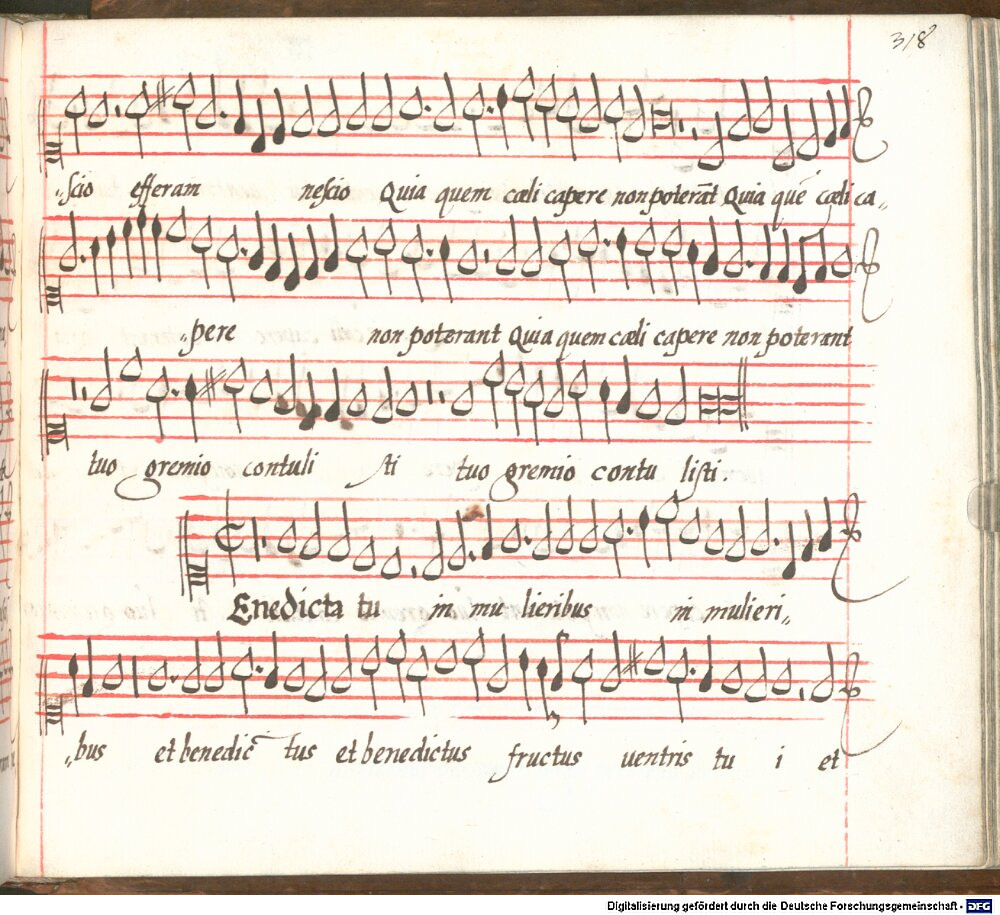 318
„scio efferam nescio Quia quem cœli capere non poterāt Quia quē cœli ca„
„pere non poterant Quia quem cœli capere non poterant
tuo gremio contuli sti tuo gremio contu listi.
Enedicta tu in mu lieribus in mulieri„
„bus et benedic̄ tus et benedictus fructus uentris tu i et
Digitalisierung gefördert durch die Deutsche Forschungsgemeinschaft - DFG